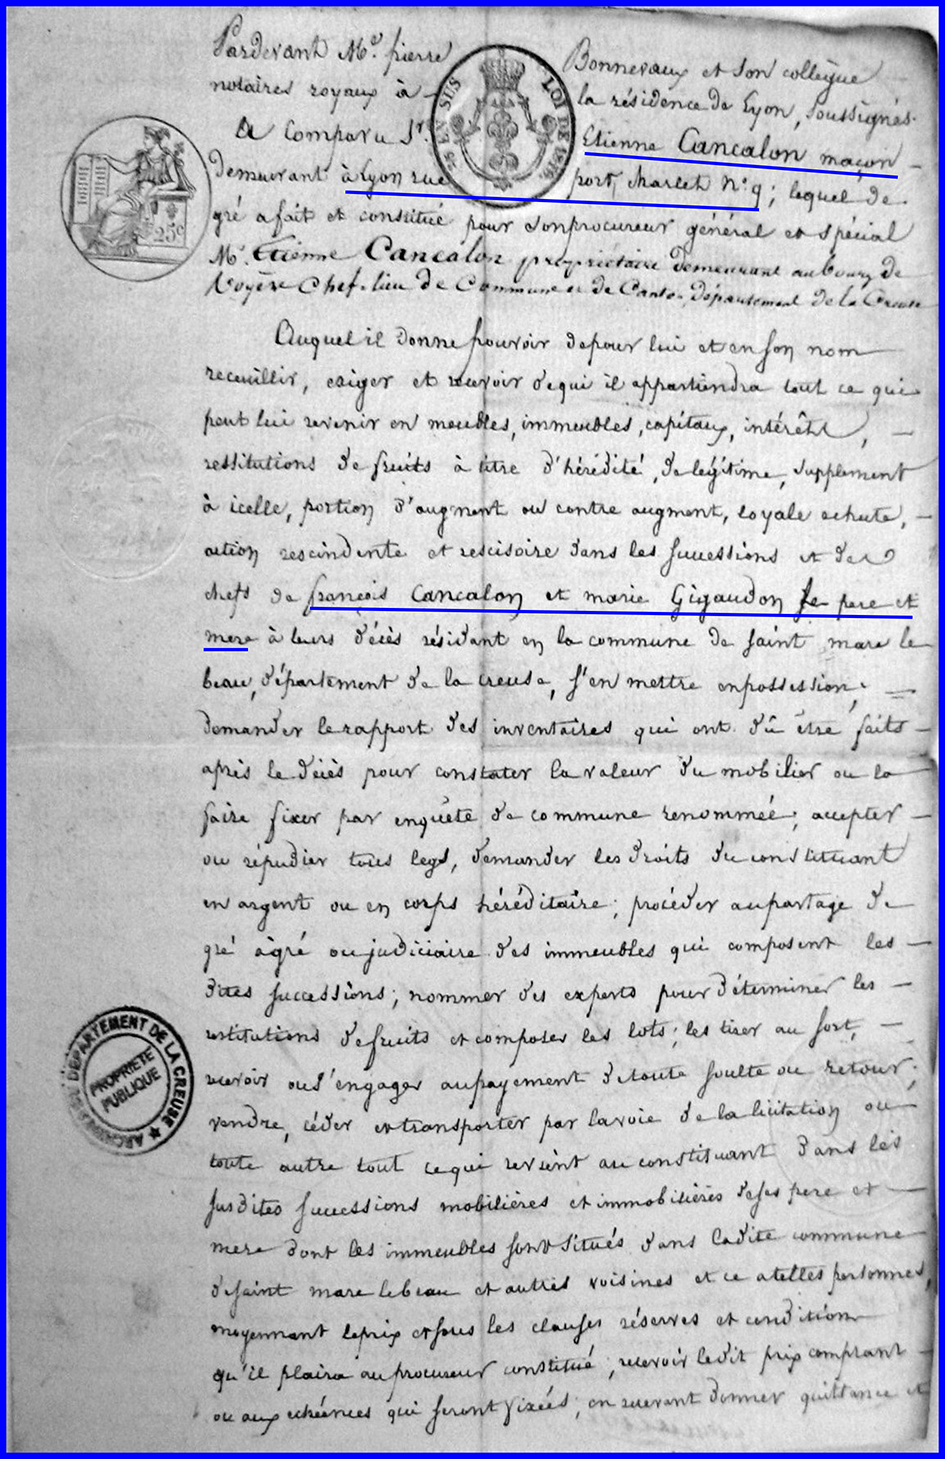 Pardevant Me. pierre Bonnevaux et son collègue
notaires royaux à la résidence de Lyon, soussignés.
A Comparu Sr. Etienne Cancalon maçon
Demeurant à Lyon rue port charlet n° 9; lequel de
gré a fait et constitué pour son procureur général et spécial
Mr. Etienne Cancalon propriétaire demeurant au bourg de
Royère Chef-lieu de Commune et de Canton, Département de la Creuse
Auquel il donne pouvoir de pour lui et en son nom
recueillir, exiger et recevoir de qui il appartiendra tout ce qui
peut lui revenir en meubles, immeubles, capitaux, intérêts,
restitutions de fruits à titre d'hérédité, de légitime, supplement
à icelle, portion d'augment ou contre augment, loyale echute,
action rescindente et rescisoire dans les successions et des
chefs de françois Cancalon et marie Gigaudon ses pere et
mere à leurs décès résidant en la commune de saint marc le
beau, département de la creuse, s'en mettre en possession;
demander le rapport des inventaires qui ont dû être faits
après le décès pour constater la valeur du mobilier ou la
faire fixer par enquête de commune renommée; accepter
ou répudier tous legs, demander les droits du constituant
en argent ou en corps héréditaire; procéder au partage de
gré à gré ou judiciaire des immeubles qui composent les
dites successions; nommer des experts pour déterminer les
restitutions de fruits et composer les lots; les tirer au sort,
recevoir ou s'engager au payement de toute soulte ou retour;
vendre, céder et transporter par la voie de la licitation ou
toute autre tout ce qui revient au constituant dans les
susdites successions mobilières et immobilières de ses pere et
mere dont les immeubles sont situés dans ladite commune
de saint marc le beau et autres voisines et ce a telles personnes,
moyennant le prix et sous les clauses réserves et condition
qu'il plaira au procureur constitué; recevoir le dit prix comptant
ou aux echéences qui seront fixées; en recevant donner quittance et
25 EN SUS
LOI DE 1816
25c
DEPARTEMENT DE LA CREUSE
PROPRIÉTÉ
PUBLIQUE